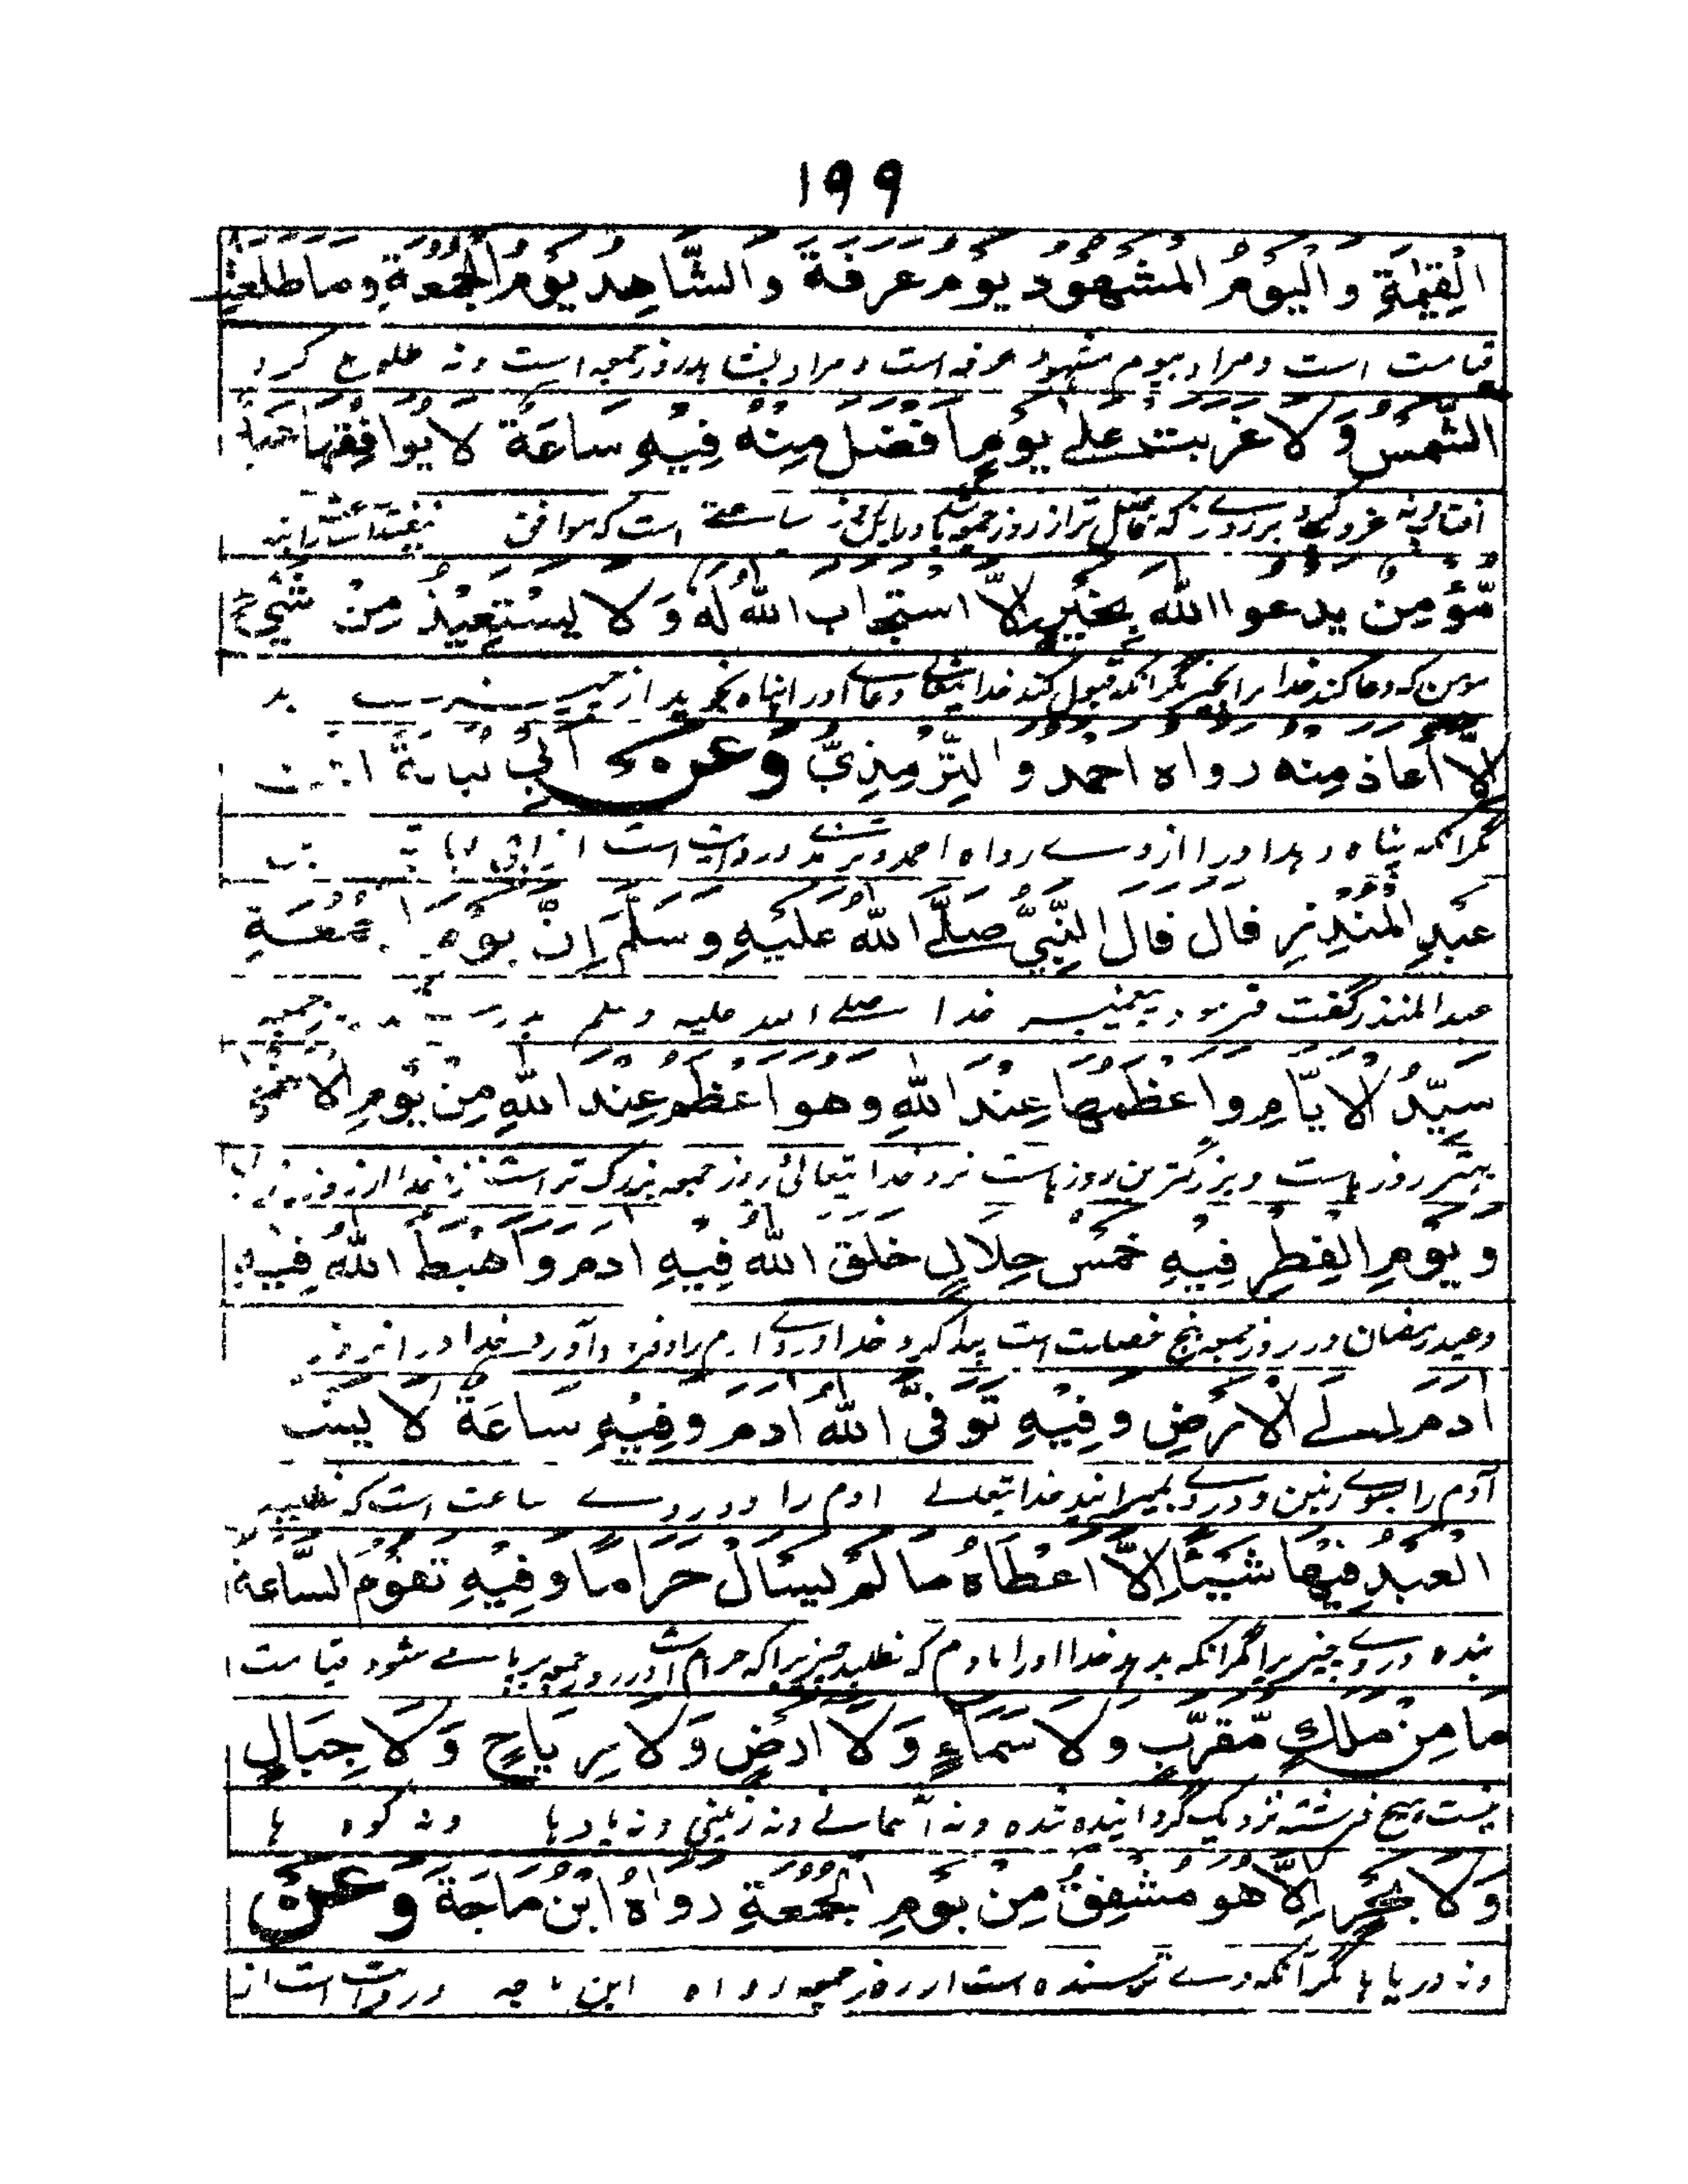 ۱۹۹
الْقِيٰمَةِ وَالْيَوْمُ الْمَشْهُوْدُ يَوْمُ عَرَفَةَ وَالشَّاهِدُ يَوْمُ الْجُمُعَةِ وَمَا طَلَعَتِ
قیامت است و مراد بیوم مشہود عرفہ است و مراد بشاہد روز جمعہ است ونہ طلوع کرد
الشَّمْسُ وَلَا غَرَبَتْ عَلٰے يَوْمٍ اَفْضَلَ مِنْهُ فِيْهِ سَاعَةٌ لَا يُوَافِقُهَا عَبْدٌ
غروب کرد بر روزے کہ فاضل تر از روز جمعہ باشد ساعتے است کہ موافق
مُّؤْمِنٌ يَدْعُو اللّٰهَ بِخَيْرٍ اِلَّا اسْتَجَابَ اللّٰهُ لَهٗ وَلَا يَسْتَعِيْذُ مِنْ شَيْءٍ
مومن کہ دعا کند خدا را بخیر مگر آنکہ قبول کند خدایتعالے دعاے او را نہ پناہ بجوید از چیزے بد
اِلَّا اَعَاذَ مِنْهُ رَوَاهُ اَحْمَدُ وَ التِّرْمِذِيُّ وَعَنْ اَبِيْ لُبَابَةَ ابْنِ
مگر آنکہ پناہ دہد او را از وے رواہ احمد و ترمذے و روایت است از ابی لبابہ
عَبْدِ الْمُنْذِرِ قَالَ قَالَ النَّبِيُّ صَلَّے اللّٰهُ عَلَيْهِ وَسَلَّمَ اِنَّ يَوْمَ الْجُمُعَةِ
عبد المنذر گفت فرمود پیغمبر خدا صلے اللہ علیہ وسلم جمعہ
سَيِّدُ الْاَيَّامِ وَاَعْظَمُهَا عِنْدَ اللّٰهِ وَهُوَ اَعْظَمُ عِنْدَ اللّٰهِ مِنْ يَّوْمِ الْاَضْحٰى
بہتر روز ہاست و بزرگترین روز ہاست نزد خدایتعالیٰ روز جمعہ بزرگ تر است نزد خدا از روز
وَيَوْمِ الْفِطْرِ فِيْهِ خَمْسُ خِلَالٍ خَلَقَ اللّٰهُ فِيْهِ اٰدَمَ وَاَهْبَطَ اللّٰهُ فِيْهِ
وعید رمضان در روز جمعہ پنج خصلت است پیدا کرد خدا در وے آدم را و فرود آورد خدا در آنروز
اٰدَمَ اِلَے الْاَرْضِ وَفِيْهِ تَوَفَّى اللّٰهُ اٰدَمَ وَفِيْهِ سَاعَةٌ لَا يَسْئَلُ
آدم را بسوے زمین و در وے بمیرانید خدایتعالے ادم را و در وے ساعت است کہ نطلبد
الْعَبْدُ فِيْهَا شَيْئًا اِلَّا اَعْطَاهُ مَا لَمْ يَسْأَلْ حَرَامًا وَفِيْهِ تَقُوْمُ السَّاعَةُ
بندہ در وے چیزیرا مگر آنکہ بدہد خدا او را مادام کہ نطلبد چیزیرا کہ حرام است و در روز جمعہ برپا مے شود قیامت
مَا مِنْ مَلَكٍ مُّقَرَّبٍ وَلَا سَمَاءٍ وَلَا اَرْضٍ وَلَا رِيَاحٍ وَلَا جِبَالٍ
نیست ہیچ فرشتہ نزدیک گردانیدہ شدہ ونہ آسمانے ونہ زمینی ونہ بادہا ونہ کوہ ہا
وَلَا بَحْرٍ اِلَّا هُوَ مُشْفِقٌ مِنْ يَوْمِ الْجُمُعَةِ رَوَاهُ ابْنُ مَاجَةَ وَعَنْ
ونہ دریاہا مگر آنکہ وے ترسندہ است از روز جمعہ رواہ ابن ماجہ و روایت است از